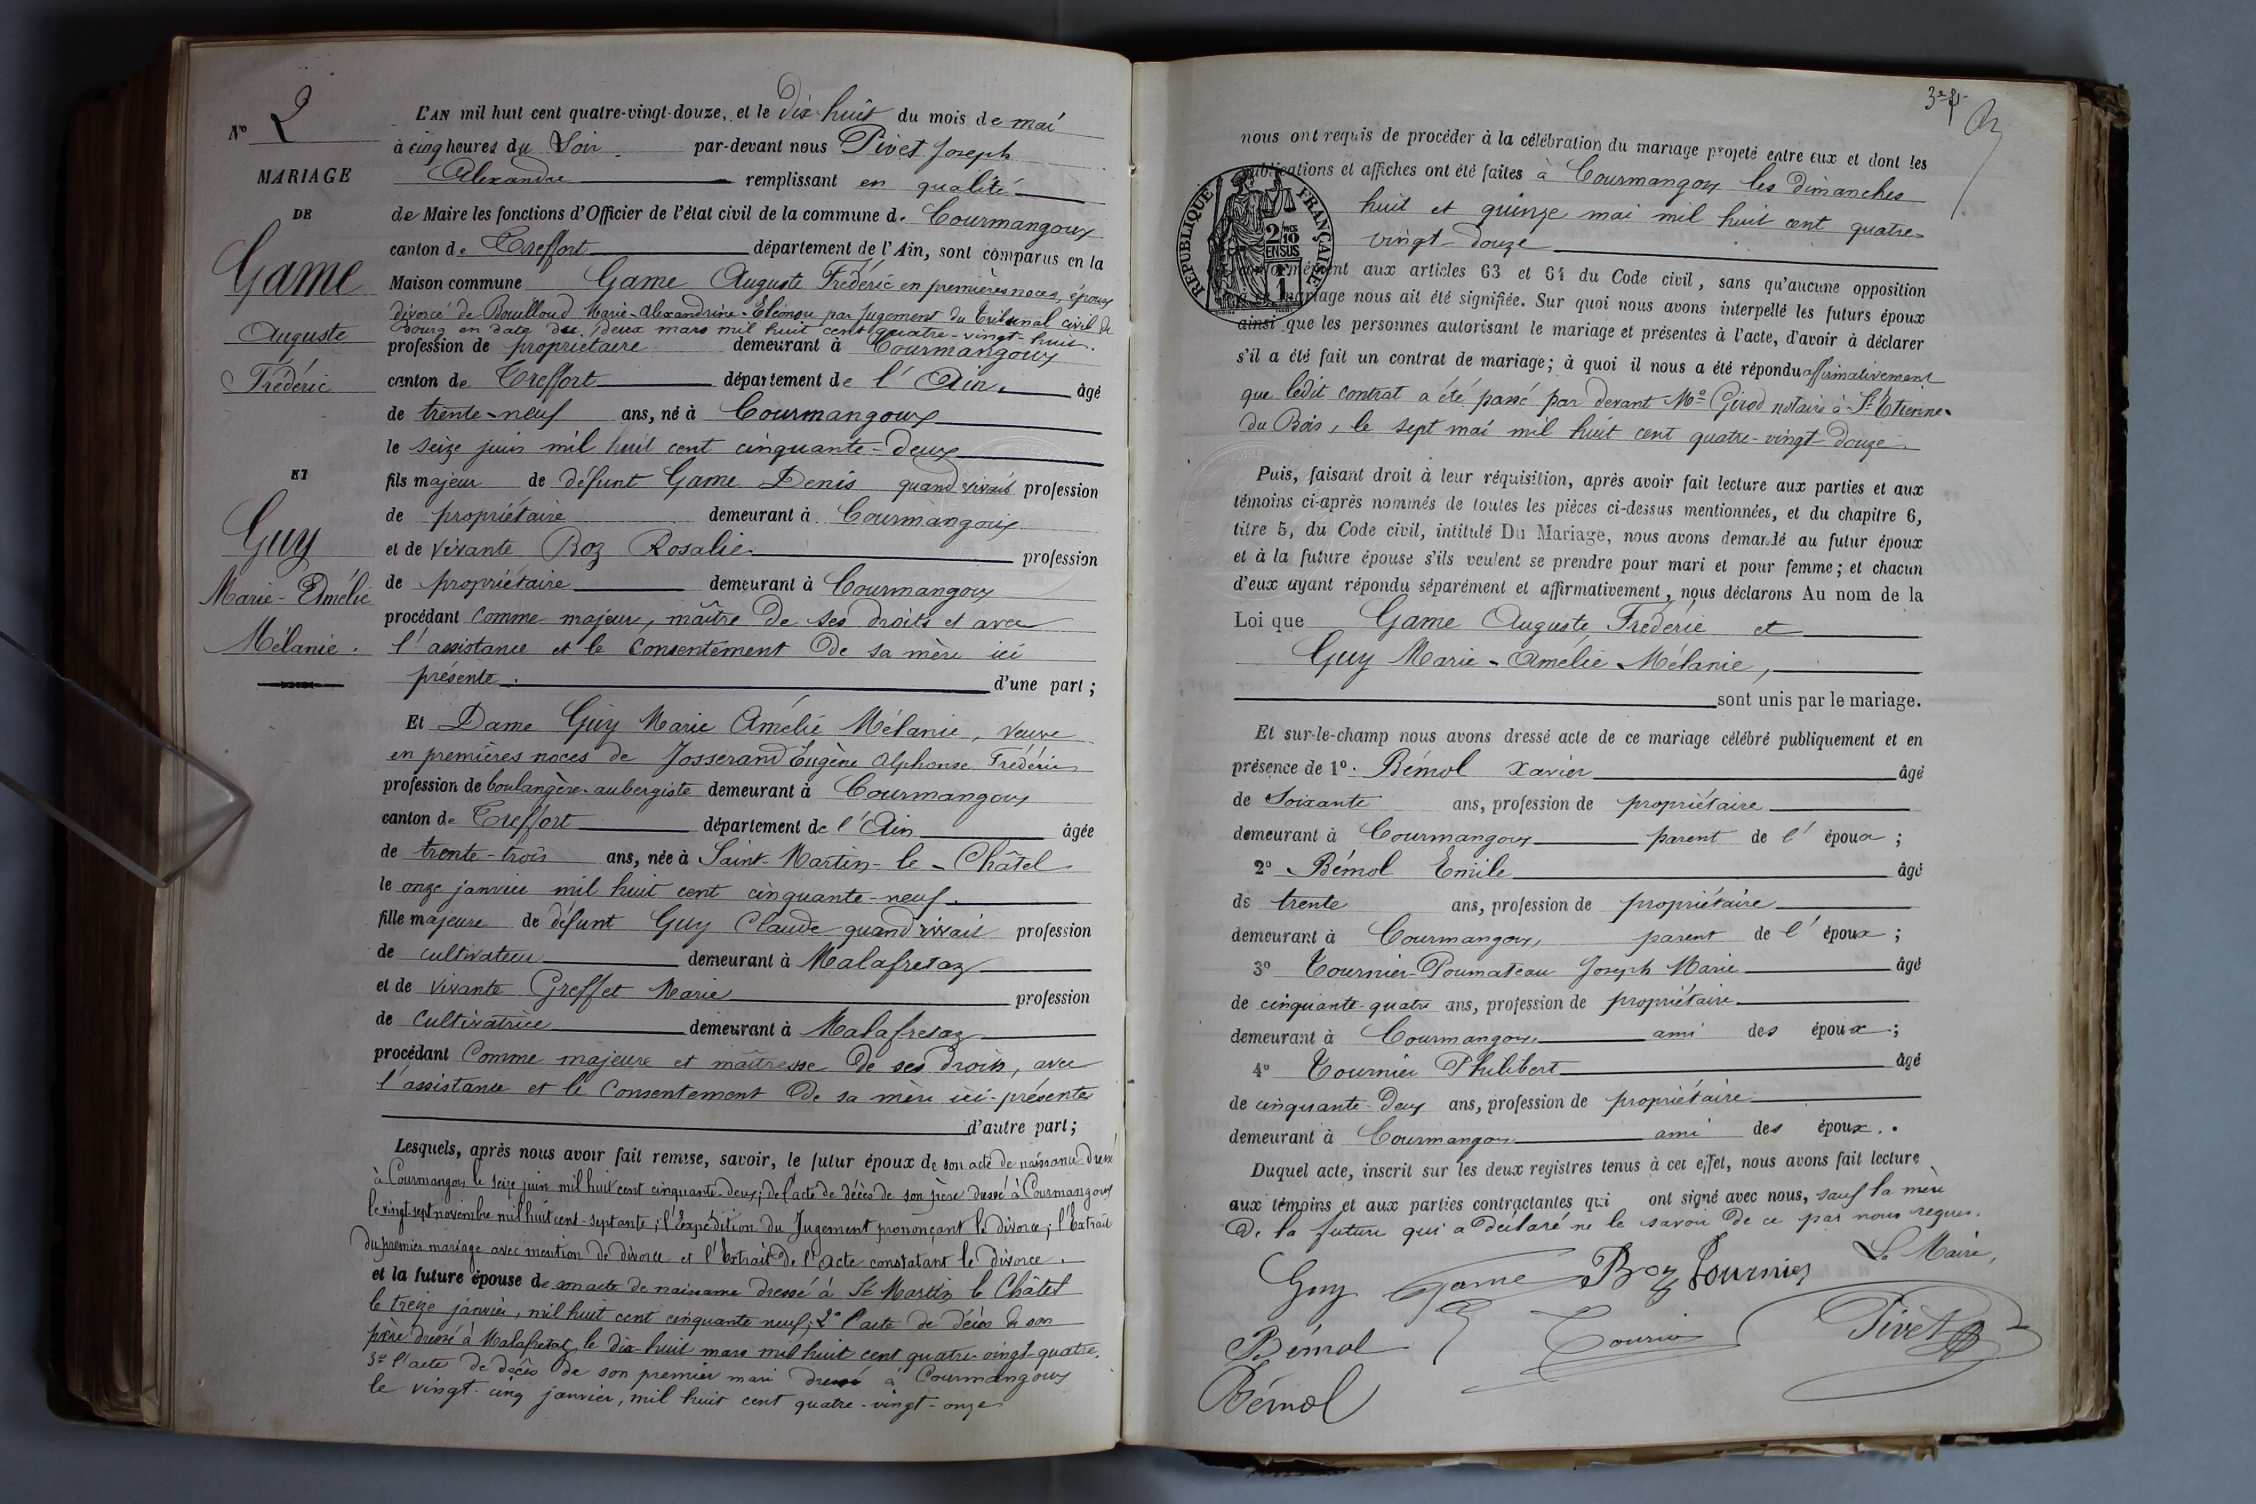 N° 2
MARIAGE
DE
Game
Auguste
Frédéric
ET
Guy
Marie-Amélie
Mélanie.
L'AN mil huit cent quatre-vingt-douze, et le Dix-huit du mois de mai
à cinq heures du Soir par-devant nous Pivet Joseph
Alexandre remplissant en qualité
de Maire les fonctions d'Officier de l'état civil de la commune de Courmangoux
canton de Treffort département de l'Ain, sont comparus en la
Maison commune Game Auguste Frédéric en premières noces, époux
divorcé de Bouilloud Marie-Alexandrine-Eléonou par Jugement du tribunal civil de
Bourg en date du deux mars mil huit cent quatre-vingt-huit.
profession de propriétaire demeurant à Courmangoux
canton de Treffort département de l'Ain. âgé
de trente-neuf ans, né à Courmangoux
le seize juin mil huit cent cinquante-deux
fils majeur de défunt Game Denis quand vivait profession
de propriétaire demeurant à Courmangoux
et de vivante Boz Rosalie. profession
de propriétaire demeurant à Courmangoux
procédant comme majeur, maître de ses droits et avec
l'assistance et le consentement de sa mère ici
présente. d'une part;
Et Dame Guy Marie Amélie Mélanie, veuve
en premières noces de Josserand Eugène Alphonse Frédéric
profession de boulangère-aubergiste demeurant à Courmangoux
canton de Treffort département de l'Ain âgée
de trente-trois ans, née à Saint-Martin-le-Châtel
le onze janvier mil huit cent cinquante-neuf.
fille majeure de défunt Guy Claude quand vivait profession
de cultivateur demeurant à Malafretaz
et de vivante Greffet Marie profession
de cultivatrice demeurant à Malafretaz
procédant comme majeure et maîtresse de ses droits, avec
l'assistance et le consentement de sa mère ici-présente
d'autre part;
Lesquels, après nous avoir fait remise, savoir, le futur époux de son acte de naissance dressé
à Courmangoux le seize juin mil huit cent cinquante-deux; de l'acte de décès de son père dressé à Courmangoux
le vingt-sept novembre mil huit cent-septante; l'Expédition du Jugement prononçant le divorce; l'Extrait
du premier mariage avec mention de divorce et l'Extrait de l'acte constatant le divorce.
et la future épouse de son acte de naissance dressé à St Martin le Châtel
le treize janvier, mil huit cent cinquante neuf; 2° l'acte de décès de son
père dressé à Malafretaz le dix-huit mars mil huit cent quatre-vingt-quatre,
3° l'acte de décès de son premier mari dressé à Courmangoux
le vingt-cinq janvier, mil huit cent quatre-vingt-onze
nous ont requis de procéder à la célébration du mariage projeté entre eux et dont les
publications et affiches ont été faites à Courmangoux les dimanches
huit et quinze mai mil huit cent quatre
vingt-douze
conformément aux articles 63 et 64 du Code civil, sans qu'aucune opposition
mariage nous ait été signifiée. Sur quoi nous avons interpellé les futurs époux
ainsi que les personnes autorisant le mariage et présentes à l'acte, d'avoir à déclarer
s'il a été fait un contrat de mariage; à quoi il nous a été répondu affirmativement
que ledit contrat a été passé par devant Me Girod notaire à St Etienne-
du Bois, le sept mai mil huit cent quatre-vingt douze.
REPUBLIQUE FRANÇAISE
2/10 EN SUS
Puis, faisant droit à leur réquisition, après avoir fait lecture aux parties et aux
témoins ci-après nommés de toutes les pièces ci-dessus mentionnées, et du chapitre 6,
titre 5, du Code civil, intitulé Du Mariage, nous avons demandé au futur époux
et à la future épouse s'ils veulent se prendre pour mari et pour femme; et chacun
d'eux ayant répondu séparément et affirmativement, nous déclarons Au nom de la
Loi que Game Auguste, Frédéric et
Guy Marie-Amélie-Mélanie,
sont unis par le mariage.
Et sur-le-champ nous avons dressé acte de ce mariage célébré publiquement et en
présence de 1°. Bémol Xavier âgé
de Soixante ans, profession de propriétaire
demeurant à Courmangoux parent de l'époux;
2° Bémol Emile âgé
de trente ans, profession de propriétaire
demeurant à Courmangoux, parent de l'époux;
3° Tournier-Poumateau Joseph Marie âgé
de cinquante-quatre ans, profession de propriétaire
demeurant à Courmangoux ami des époux;
4° Tournier Philibert âgé
de cinquante-deux ans, profession de propriétaire
demeurant à Courmangoux ami des époux..
Duquel acte, inscrit sur les deux registres tenus à cet effet, nous avons fait lecture
aux témoins et aux parties contractantes qui ont signé avec nous, sauf la mère
de la future qui a déclaré ne le savoir de ce par nous requis.
Le Maire,
Guy Game Boz Tournier
Bémol Tournier Pivet
Bémol